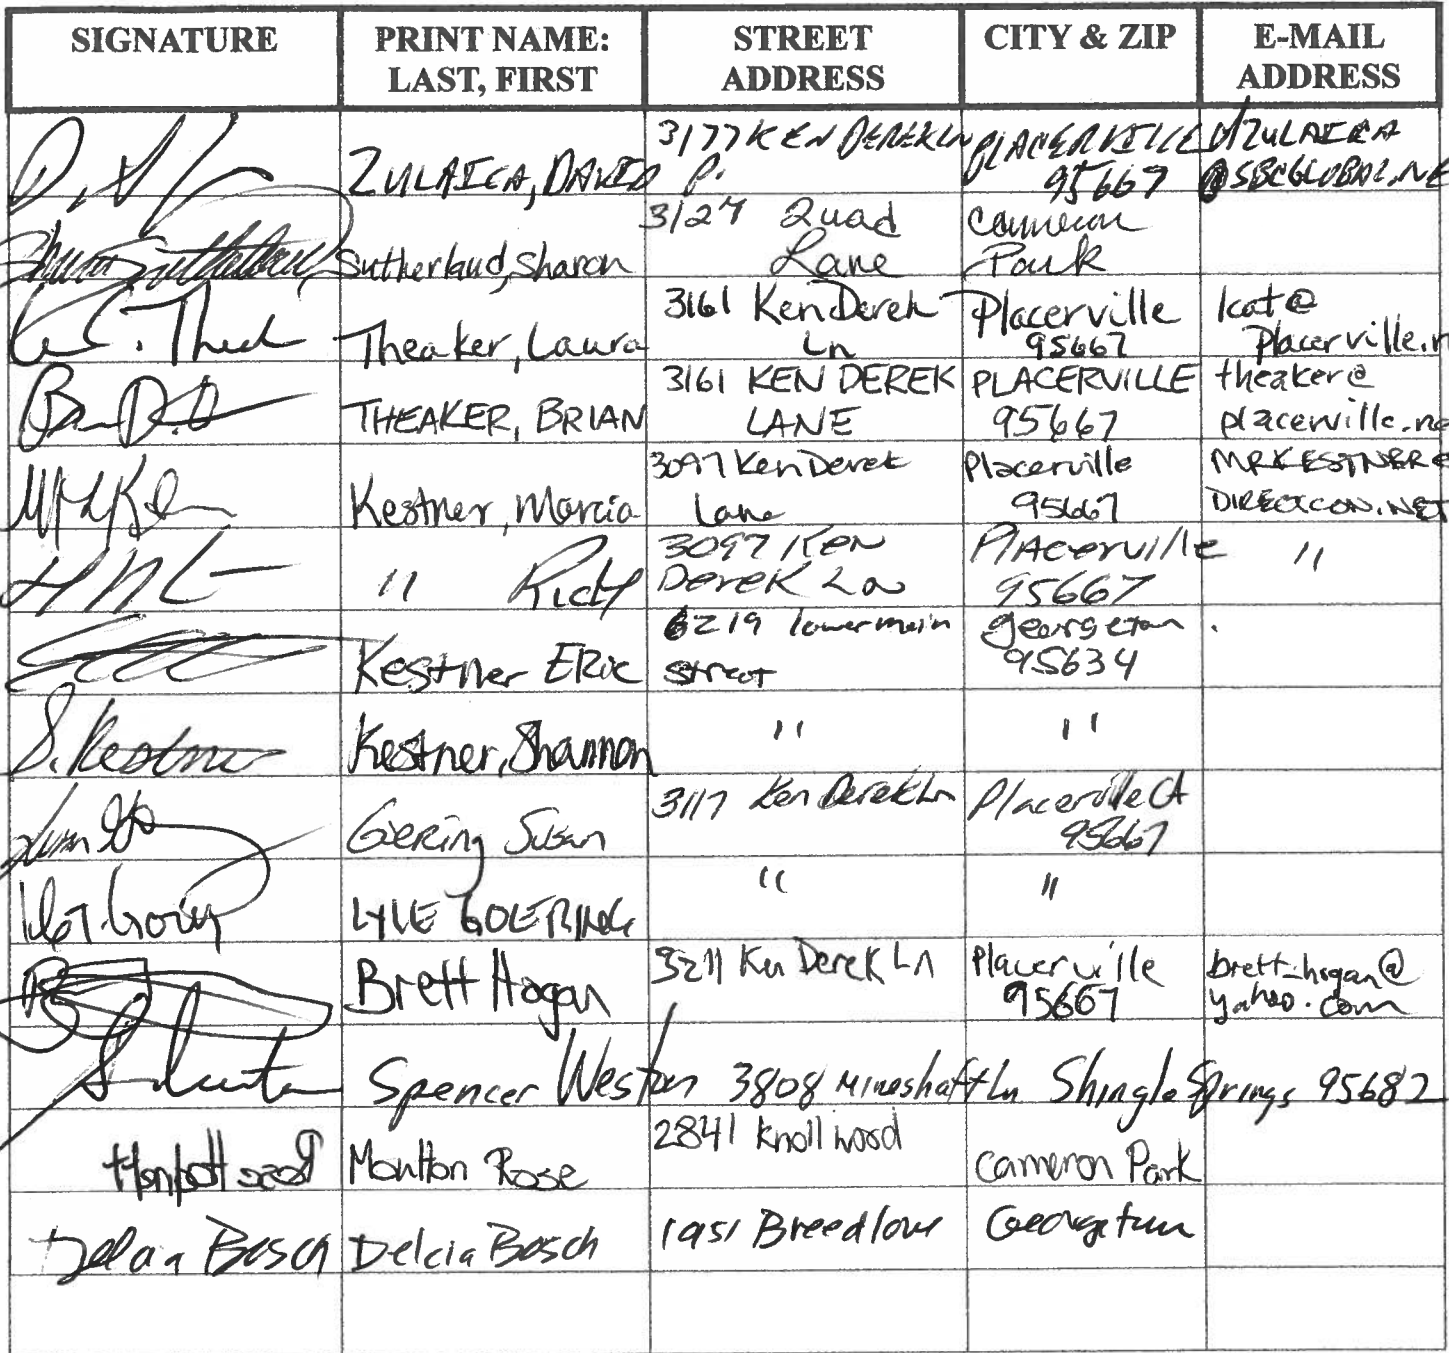 SIGNATURE PRINT NAME: LAST, FIRST STREET ADDRESS CITY & ZIP E-MAIL ADDRESS
ZULAICA, DAVID P. 3177 KEN DEREK LN PLACERVILLE 95667 dZULAICA @SBCGLOBAL.NE
Sutherland, Sharon 3127 Quad Lane Cameron Park
Theaker, Laura 3161 Ken Derek Ln Placerville 95667 lcat@ placerville.n
THEAKER, BRIAN 3161 KEN DEREK LANE PLACERVILLE 95667 theaker@ placerville.ne
Kestner, Marcia 3097 Ken Derek Lane Placerville 95667 MRKESTNER@ DIRECTCON.NET
" Rich 3097 Ken Derek Ln Placerville 95667 "
Kestner Eric 6219 lower main street georgetown 95634
S. Kestner Kestner, Shannon " "
Goering Susan 3117 Ken Derek Ln Placerville CA 95667
LYLE GOERING " "
Brett Hogan 3211 Ken Derek Ln Placerville 95667 brett_hogan@ yahoo.com
Spencer Weston 3808 Mineshaft Ln Shingle Springs 95682
Rose Moulton Rose 2841 Knollwood Cameron Park
Delcia Bosch Delcia Bosch 1951 Breedlove Georgetown